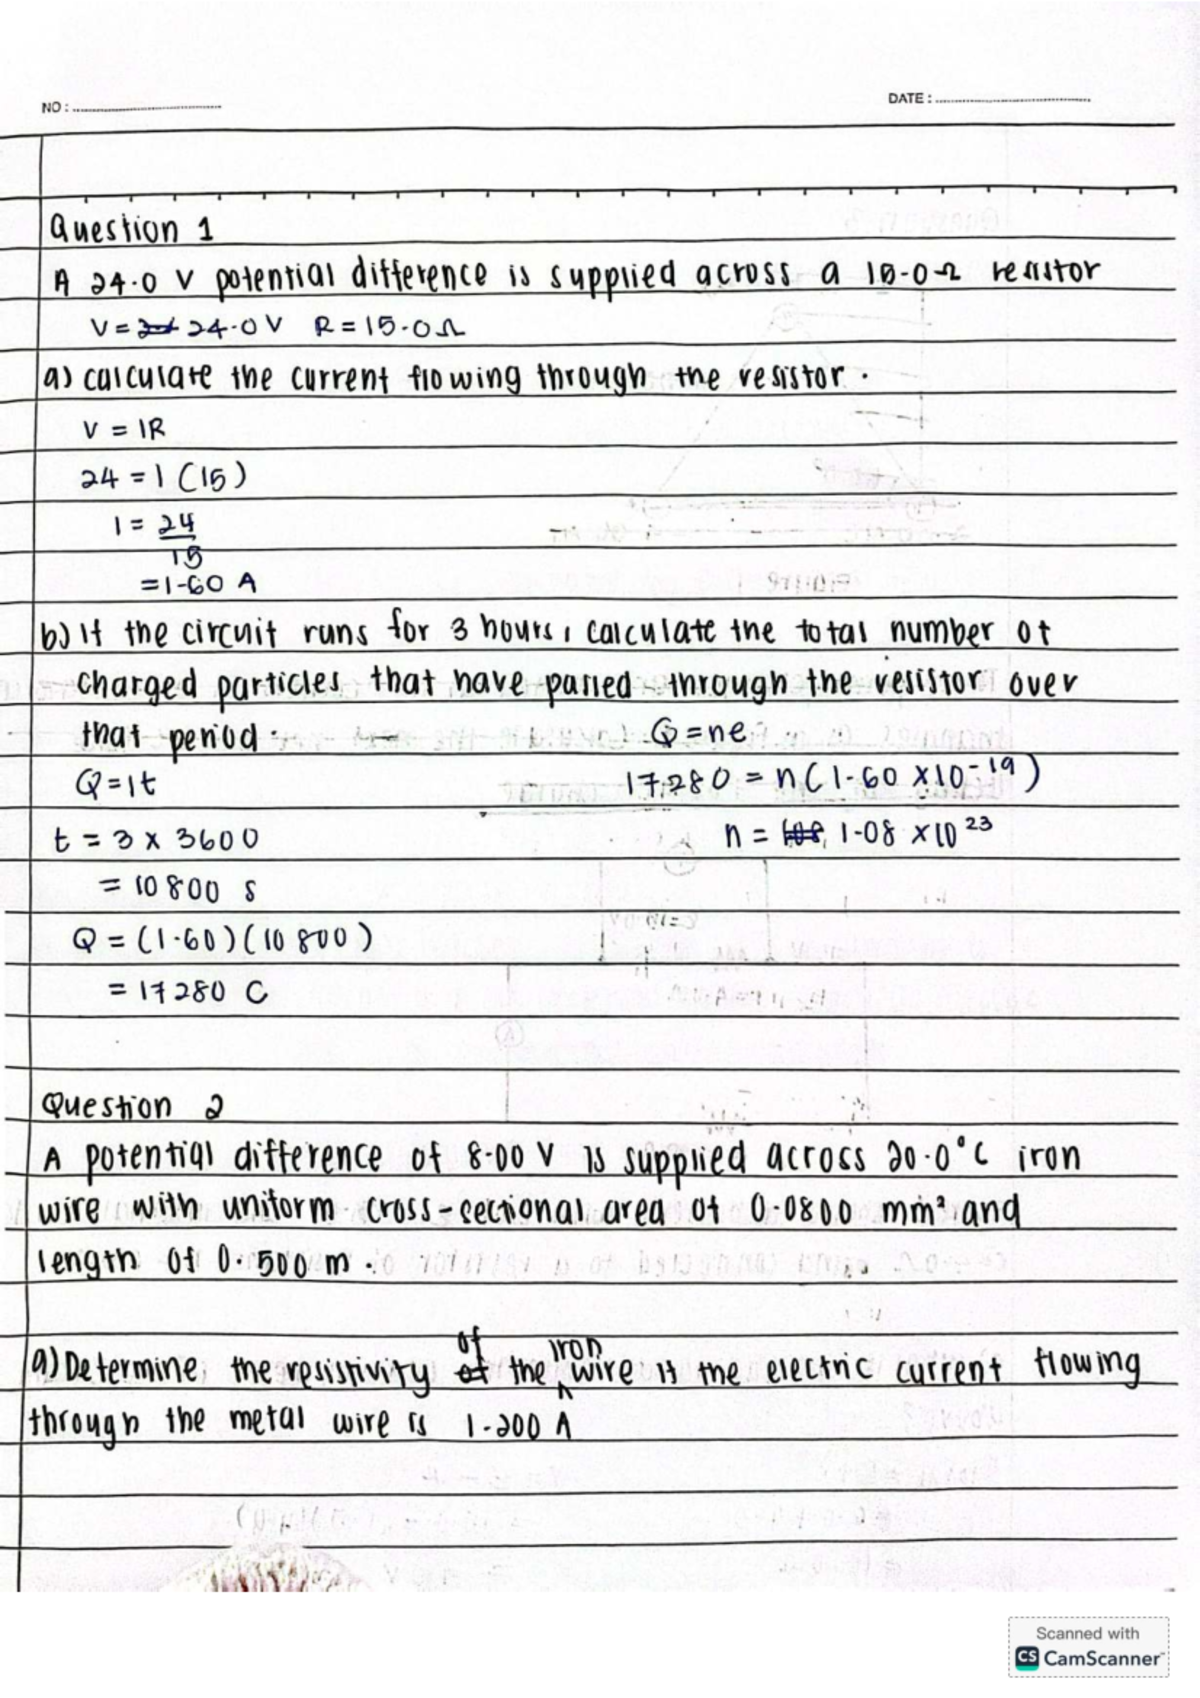 NO :
DATE :
Question 1
A 24.0 V potential difference is supplied across a 15.0Ω resistor
V = 24.0V R = 15.0Ω
a) calculate the current flowing through the resistor.
V = IR
24 = I (15)
I = 24
15
= 1.60 A
b) If the circuit runs for 3 hours, calculate the total number of
charged particles that have passed through the resistor over
that period.
Q = ne
Q = It
17280 = n(1.60 x10-19)
t = 3 x 3600
n = 1.08 x10 23
= 10800 s
Q = (1.60)(10800)
= 17280 C
Question 2
A potential difference of 8.00 V is supplied across 20.0°C iron
wire with uniform cross-sectional area of 0.0800 mm² and
length of 0.500 m.
a) Determine the resistivity of the iron wire if the electric current flowing
through the metal wire is 1.200 A
Scanned with
CS CamScanner